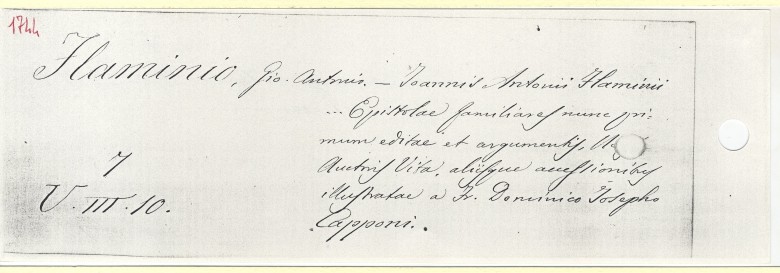 1744
Flaminio, Gio. Antonio. — Joannis Antonii Flaminii
... Epistolae familiares nunc pri-
mum editae et argumentis,
Auctoris Vita, aliisque accessionibus
illustratae a Fr. Dominico Josepho
Capponi.
7
V. III. 10.